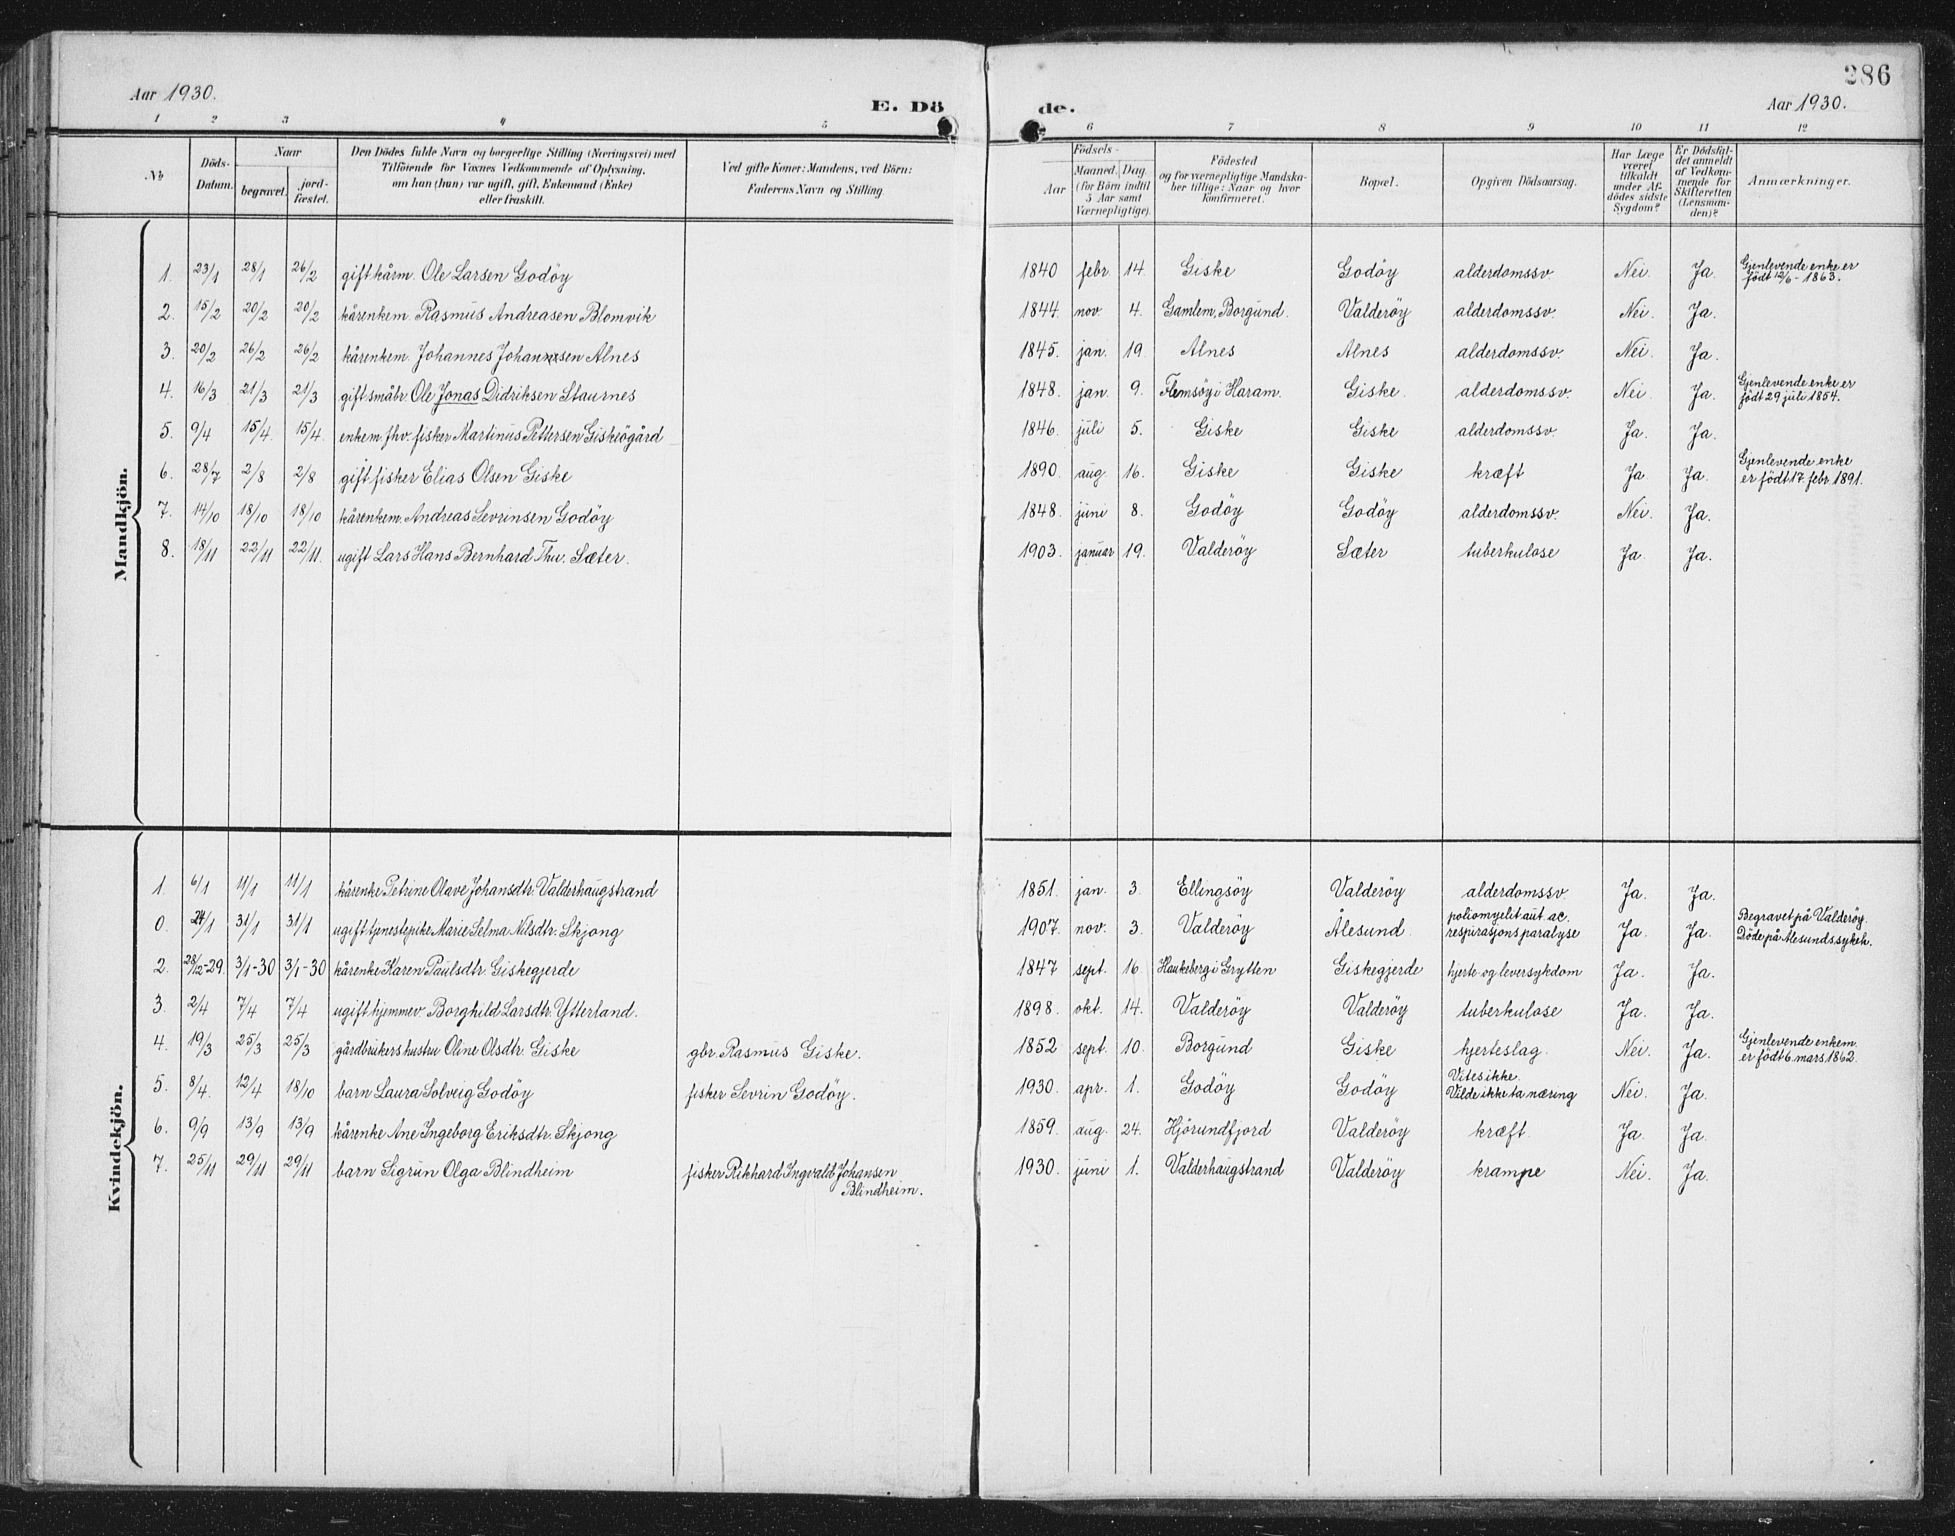 286
Aar 1930.
E. Dö de.
Aar 1930.
1 2 3 4 5 6 7 8 9 10 11 12
No
Döds-Datum.
Naar
begravet.
jord-fæstet.
Den Dödes fulde Navn og borgerlige Stilling (Næringsvei) med
Tilföiende for Voxnes Vedkommende af Oplysning,
om han (hun) var ugift, gift, Enkemand (Enke)
eller fraskilt.
Ved gifte Koner: Mandens, ved Börn:
Faderens Navn og Stilling.
Födsels-
Aar
Maaned. (for Börn indtil 5 Aar samt Værnepligtige).
Dag
Födested
og for værnepligtige Mandska-
ber tillige: Naar og hvor
konfirmeret.
Bopæl.
Opgiven Dödsaarsag.
Har Læge været tilkaldt under Af-dödes sidste Sygdom?
Er Dödsfal-det anmeldt af Vedkom-mende for Skifteretten (Lensman-den)?
Anmærkninger.
Mandkjön.
1. 23/1 28/1 26/2 gift kårm. Ole Larsen Godöy 1840 febr. 14. Giske Godöy alderdomssv. Nei. Ja. Gjenlevende enke er födt 12/6 - 1863.
2. 15/2 20/2 20/2 kårenkem. Rasmus Andreasen Blomvik 1844. nov 4. Gamlem, Borgund. Valderöy alderdomssv. Nei. Ja.
3. 20/2 26/2 26/2 kårenkem. Johannes Johansen Alnes 1845. jan. 19. Alnes Alnes alderdomssv. Nei. Ja.
4. 16/3 21/3 21/3 gift småbr. Ole Jonas Didriksen Staurnes 1848. jan. 9. Flemsöy i Haram. Giske. alderdomssv. Nei. Ja. Gjenlevende enke er födt 29 juli 1854.
5. 9/4 15/4. 15/4. enkem. fhv. fisker Martinus Pettersen Giskeögård 1846. juli 5. Giske Giske alderdomssv. Ja. Ja.
6. 28/7 2/8 2/8 gift fisker Elias Olsen Giske 1890. aug. 16. Giske Giske kræft Ja Ja. Gjenlevende enke er födt 17. febr. 1891.
7. 14/10 18/10 18/10 kårenkem. Andreas Sevrinsen Godöy 1848. juni 8. Godöy Godöy alderdomssv. Nei. Ja.
8. 18/11 22/11 22/11. ugift Lars Hans Bernhard Thv. Sæter. 1903. januar 19. Valderöy Sæter tuberkulose Ja. Ja.
Kvindekjön.
1. 6/1 11/1 11/1 kårenke Petrine Olave Johansdtr. Valderhaugstrand 1851. jan. 3. Ellingsöy Valderöy alderdomssv. Ja. Ja.
0. 24/1 31/1 31/1 ugift tjenestepike Marie Selma Nilsdtr. Skjong 1907. nov. 3. Valderöy Ålesund. poliomyelit aut. ac. respirasjonsparalyse Ja. Ja. Begravet på Valderöy. Döde på Ålesunds sykeh.
2. 28/12-29. 3/1-30 3/1-30 kårenke Karen Paulsdtr. Giskegjerde 1847 sept. 16. Haukeberg i Grytten Giskegjerde hjerte og leversykdom Ja. Ja.
3. 2/4 7/4 7/4 ugift hjemmev. Borghild Larsdtr. Ytterland. 1898. okt. 14. Valderöy Valderöy tuberkulose Ja. Ja.
4. 19/3 25/3 25/3 gårdbrukers hustru Oline Olsdtr. Giske gbr. Rasmus Giske. 1852 sept. 10. Borgund Giske hjerteslag. Nei. Ja. Gjenlevende enkem. er födt 6. mars 1862.
5. 8/4. 12/4 18/10 barn Laura Solveig Godöy fisker Sevrin Godöy. 1930. apr. 1. Godöy Godöy Vites ikke. Vilde ikke ta næring Nei. Ja.
6. 9/9 13/9 13/9 kårenke Ane Ingeborg Eriksdtr. Skjong 1859. aug. 24. Hjörundfjord Valderöy kræft. Ja. Ja.
7. 25/11 29/11 29/11 barn Sigrun Olga Blindheim fisker Rikhard Ingvald Johansen Blindheim. 1930. juni 1. Valderhaugstrand Valderöy krampe Nei. Ja.